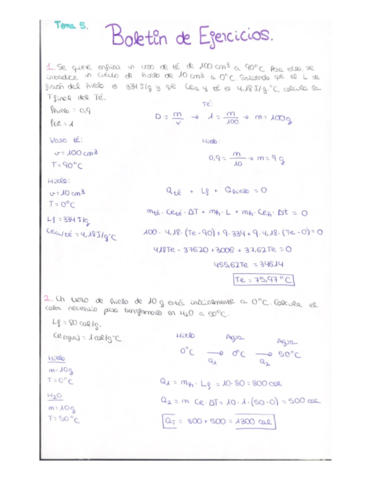 Tema 5.
Boletín de Ejercicios.
1. Se quiere enfriar un vaso de té de 100 cm³ a 90°C. Para ello, se
introduce un cubito de hielo de 10 cm³ a 0°C. Sabiendo que el L de
fusión del hielo es 334 J/g y que es 4,18 J/g°C, calcula la
T final del Té.
Phielo = 0,9
Pté = 1
Vaso té:
v = 100 cm³
T = 90°C
Hielo:
v = 10 cm³
T = 0°C
Lf = 334 J/g
Ce = 4,18 J/g°C
Té:
D = m/v → 1 = m/100 → m = 100g
Hielo:
0,9 = m/10 → m = 9 g
Qté + Lf + Qhielo = 0
mté · Ceté · ΔT + mh · L + mh · Ceh · ΔT = 0
100 · 4,18 · (Te - 90) + 9 · 334 + 9 · 4,18 · (Te - 0) = 0
418Te - 37620 + 3006 + 37,62Te = 0
455,62Te = 34614
Te = 75,97°C
2. Un trozo de hielo de 10 g está inicialmente a 0°C. Calcula el
calor necesario para transformarlo en H₂O a 50°C.
Lf = 80 cal/g.
Ce (agua) = 1 cal/g°C
Hielo Agua Agua
0°C → 0°C → 50°C
Q1 Q2
Hielo
m = 10g
T = 0°C
H₂O
m = 10g
T = 50°C
Q1 = mh · Lf = 10 · 80 = 800 cal
Q2 = m · Ce · ΔT = 10 · 1 · (50 - 0) = 500 cal
QT = 800 + 500 = 1300 cal